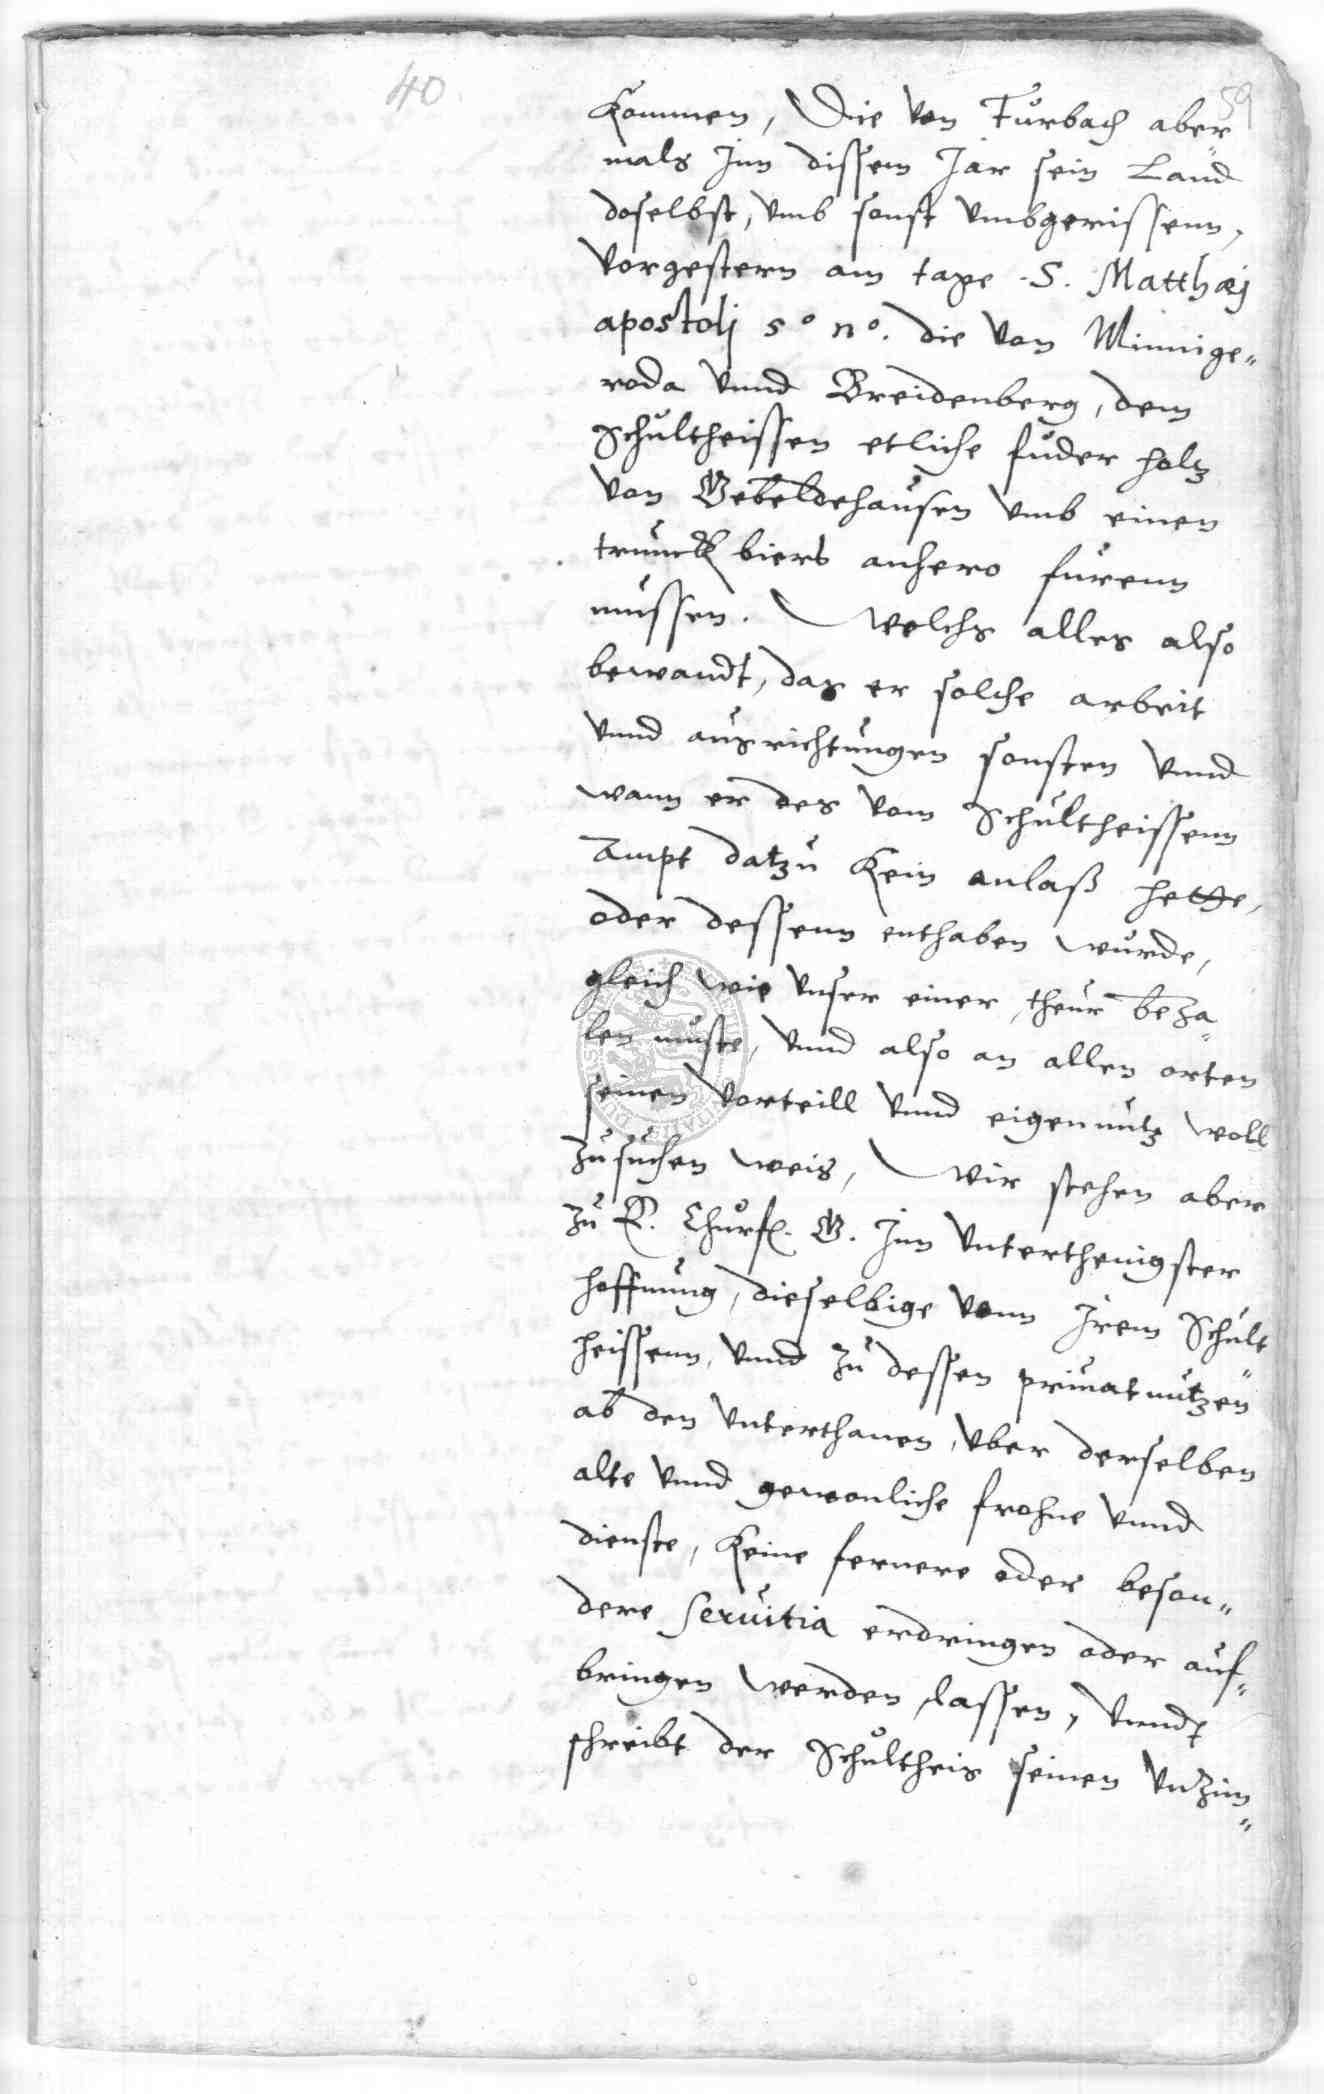 40
59
kommen, Die von Furbach aber
mals Inn dissem Jar sein Land
doselbst, vmb sonst vmbgerissenn,
vorgestern am tage S. Matthæj
apostolj s° n°. die von Minnige„
roda vnnd Breidenberg, dem
Schultheissen etliche fuder holtz
von Gebeldehausen vmb einen
trunck biers anhero furenn
mussen. Welchs alles also
bewandt, das er solche arbeit
vnnd ausrichtungen sonsten vnnd
wann er des vom Schultheissenn
Ampt datzu kein anlaß hette,
oder dessenn enthaben wurde,
gleich wie vnser einer, theur beza„
len muste, vnnd also an allen orten
seinen vorteill vnnd eigennutz woll
zusuchen weis, Wir stehen aber
zu E. Churf. G. Inn vnterthenigster
hoffnung, dieselbige vonn Irem Schult„
heissenn, vnnd zu dessen priuatnutzen
ab den vnterthanen, vber derselben
alte vnnd gewonliche frohne vnnd
dienste, keine fernere oder beson„
dere seruitia erdringen oder auf„
bringen werden lassen, vnndt
schreibt der Schultheis seinen vnzim„